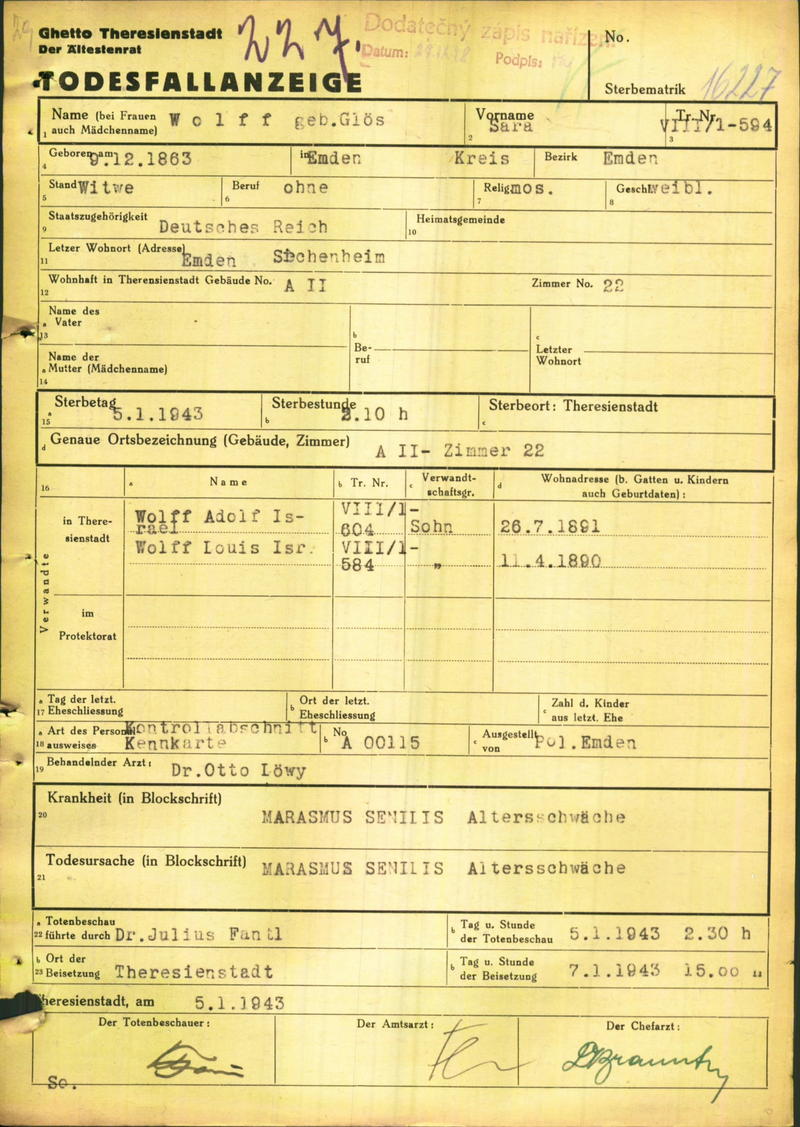 Ghetto Theresienstadt
Der Ältestenrat
227.
Dodatečný zápis nařízen
Datum:
Podpis:
No.
TODESFALLANZEIGE
Sterbematrik 16227
Name (bei Frauen auch Mädchenname) Wolff geb.Glös
1
Vorname Sara
2
Tr. Nr. VIII/1-594
3
Geboren am 9.12.1863
4
in Emden Kreis
Bezirk Emden
Stand Witwe
5
Beruf ohne
6
Relig. mos.
7
Geschl. weibl.
8
Staatszugehörigkeit Deutsches Reich
9
Heimatsgemeinde
10
Letzer Wohnort (Adresse) Emden
11
Wohnhaft in Theresienstadt Gebäude No. A II
12
Zimmer No. 22
Name des
a Vater
13
b Beruf
c Letzter Wohnort
Name der
a Mutter (Mädchenname)
14
Sterbetag 5.1.1943
15 a
Sterbestunde 2.10 h
b
Sterbeort: Theresienstadt
c
d Genaue Ortsbezeichnung (Gebäude, Zimmer) A II- Zimmer 22
16
a Name
b Tr. Nr.
c Verwandtschaftsgr.
d Wohnadresse (b. Gatten u. Kindern auch Geburtdaten):
Verwandte
in Theresienstadt
Wolff Adolf Israel VIII/1-604 Sohn 26.7.1891
Wolff Louis Isr. VIII/1-584 " 11.4.1890
im Protektorat
a Tag der letzt.
17 Eheschliessung
b Ort der letzt. Eheschliessung
c Zahl d. Kinder aus letzt. Ehe
a Art des Personal-
18 ausweises Kontrollabschnitt Kennkarte
b No A 00115
c Ausgestellt von Pol.Emden
Behandelnder Arzt: Dr.Otto Löwy
19
Krankheit (in Blockschrift) MARASMUS SENILIS Altersschwäche
20
Todesursache (in Blockschrift) MARASMUS SENILIS Altersschwäche
21
a Totenbeschau
22 führte durch Dr.Julius Fantl
b Tag u. Stunde der Totenbeschau 5.1.1943 2.30 h
b Ort der
23 Beisetzung Theresienstadt
b Tag u. Stunde der Beisetzung 7.1.1943 15.00 "
Theresienstadt, am 5.1.1943
Der Totenbeschauer:
Der Amtsarzt:
Der Chefarzt:
So.